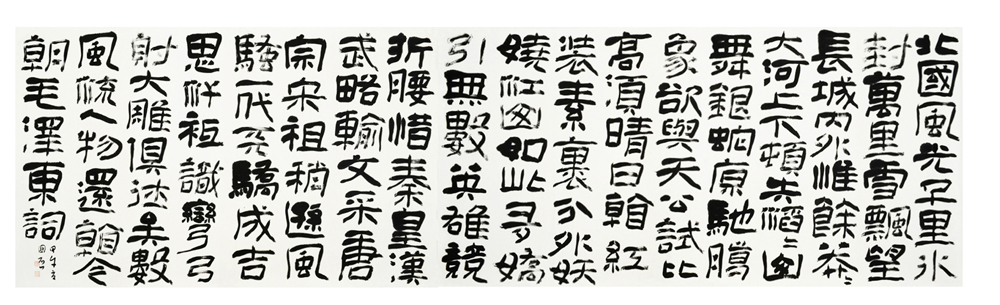 北國風光千里冰
封萬里雪飄望
長城內外惟餘莽〻
大河上下頓失滔〻山
舞銀蛇原馳臘
象欲與天公試比
高須晴日看紅
裝素裹分外妖
嬈江山如此多嬌
引無數英雄競
折腰惜秦皇漢
武略輸文采唐
宗宋祖稍遜風
騷一代天驕成吉
思汗祗識彎弓
射大雕俱往矣數
風流人物還看今
朝毛澤東詞
甲午